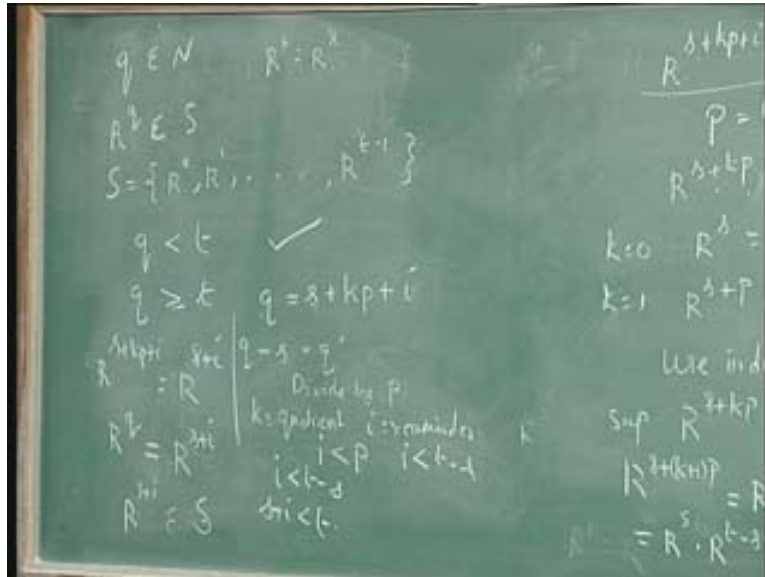 q ∈ N R^t = R^s
R^q ∈ S
S = {R^0, R^1, . . . ., R^{t-1}}
q < t ✓
q ≥ t q = s+kp+i
R^{s+kp+i} = R^{s+i} q-s = q'
Divide by p.
k=quotient i=remainder.
R^q = R^{s+i} i<p i<t-s
i<t-s
R^{s+i} ∈ S s+i<t.
R^{s+kp+i}
P =
R^{s+kp}
k=0 R^s =
k=1 R^{s+p}
Use ind
Sup R^{s+kp}
R^{s+(k+1)p} = R
= R^s . R^{t-s}